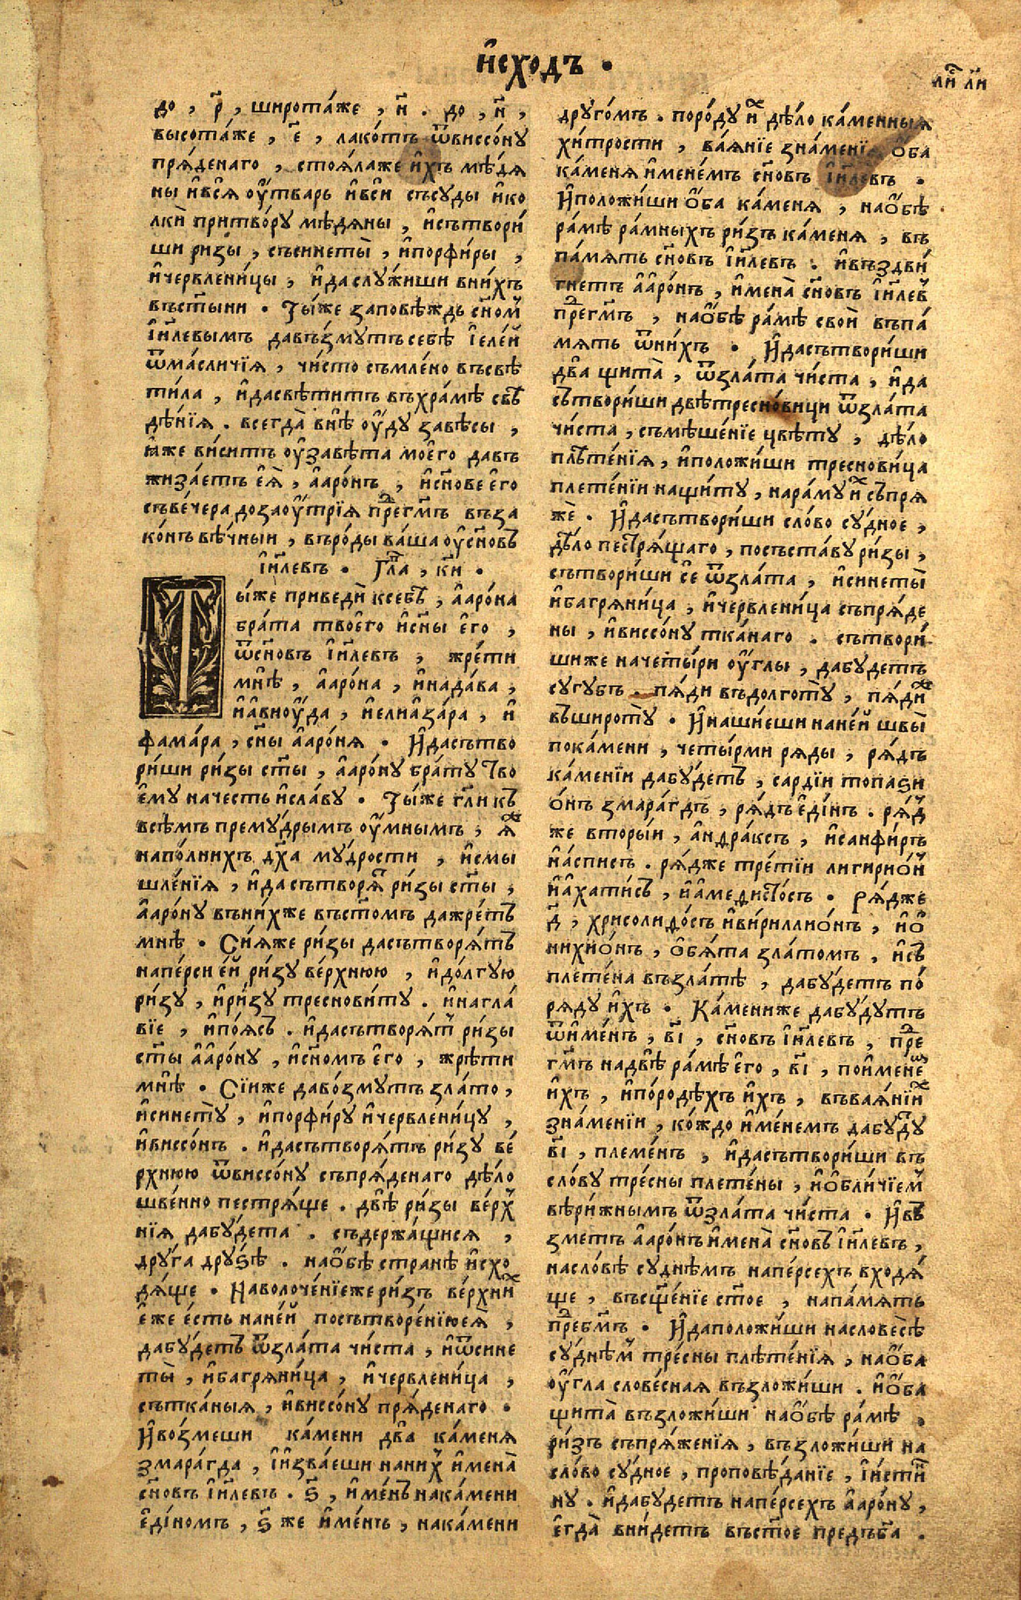 и҆схо́дъ .
ли́ ли
до , р҃ , широта́же , н҃ . до , н҃ ,
высота́же , е҃ , лако́тъ ѿвиссо́ну
пря́денаго , стоя́лаже и҆́хъ мѣ́дя
ны и҆вся̀ оу҆́тварь и҆всѝ съсу́ды и҆ко
лкѝ притво́ру мѣ́дяны , и҆сътвори́
ши ри́зы , съсинеты̀ , и҆порфи́ры ,
и҆червлени́цы , и҆даслу́жиши вни́хъ
въст҃ы́ни . Ты́же заповѣ́ждь сн҃ом
і҆и҃левымъ давъзмутъ себѣ̀ і҆еле́й
ѿма́сличїя , чи́сто съмле́но въсвѣ
ти́ла , и҆дасвѣ́титъ въхра́мѣ свѣ
дѣ́нїя . всегда̀ внѣ̀ оу҆́ду завѣ́сы ,
я҆́же ви́ситъ оу҆завѣ́та мое҆го̀ давъ
жиза́етъ е҆я̀ , а҆аро́нъ , и҆сн҃ове е҆го̀
съве́чера доза́оу҆трїя прегмъ въза
ко́нъ вѣ́чныи , въро́ды ва́ша оу҆сн҃овъ
і҆и҃левъ . Гла , к҃и .
Ты́же приведѝ ксебѣ̀ , а҆аро́на
бра́та твое҆го̀ и҆сн҃ы е҆го̀ ,
ѿсн҃овъ і҆и҃левъ , жре́ти
мнѣ̀ , а҆аро́на , и҆нада́ва ,
и҆а҆виоу҆́да , и҆е҆лиа҆за́ра , и҆
фама́ра , сн҃ы а҆аро́ня . И҆дасътво
ри́ши ри́зы ст҃ы , а҆аро́ну бра́ту тво
е҆му̀ начесть и҆сла́ву . Ты́же гл҃и къ
всѣ́мъ прему́дрымъ оу҆́мнымъ , я҆
напо́лнихъ дх҃а му́дрости , и҆смы
шле́нїя , и҆дасътворя ри́зы ст҃ы ,
а҆аро́ну въни́хже въст҃омъ дажре́тъ
мнѣ̀ . Сїя́же ри́зы дасътворя́тъ
напе́рси е҆́й ри́зу ве́рхнюю , и҆до́лгую
ри́зу , и҆ри́зу треснови́ту . и҆нагла́
вїе , и҆по́ясъ . и҆дасътворя́т ри́зы
ст҃ы а҆аро́ну , и҆сн҃омъ е҆го̀ , жрѣ́ти
мнѣ̀ . Сїи́же даво́змутъ зла́то ,
и҆синету̀ , и҆порфи́ру и҆червлени́цу ,
и҆виссо́нъ . и҆дасътворя́тъ ри́зу ве́
рхнюю ѿвиссо́ну съпря́денаго дѣ́ло
шве́нно пестря́ще . двѣ̀ ри́зы ве́рх
нїя дабу́дета . съдержа́щися ,
дру́га дру́ѕѣ . нао҆́бѣ странѣ̀ и҆схо
дя́ще . Наволоче́нїежериз́ъ ве́рхнїи
е҆́же е҆́сть на́ней посътворе́нїюе҆я̀ ,
дабу́детъ ѿзла́та чи́ста , и҆ѿсине
ты̀ , и҆багряни́ца , и҆червлени́ца ,
сътка́ныя , и҆виссо́ну пря́денаго .
И҆во́змеши ка́мени два̀ ка́меня
змара́гда , і҆изва́еши нани́х и҆мена̀
сн҃овъ і҆и҃левъ . ѕ҃ , и҆ме́нъ нака́мени
е҆ди́номъ , ѕ҃ же и҆ме́нъ , нака́мени
друго́мъ . поро́ду и҆х дѣ́ло ка́менныя
хи́трости , вая́нїе зна́менїя о҆́ба
ка́меня и҆мене́мъ сн҃овъ і҆и҃левъ .
И҆положи́ши о҆́ба ка́меня , нао҆́бѣ
ра́мѣ ра́мныхъ ри́зъ ка́меня , въ
па́мять сн҃овъ і҆и҃левъ . и҆въздви́
гнетъ а҆аро́нъ , и҆мена̀ сн҃овъ і҆и҃лев
прегмъ , нао҆́бѣ ра́мѣ своѝ въпа́
мять ѿни́хъ . И҆дасътвори́ши
два̀ щита̀ , ѿзла́та чи́ста , и҆да
сътвори́ши двѣ̀тресно́вици ѿзла́та
чи́ста , съмѣше́нїе цвѣ́ту , дѣ́ло
плете́нїя , и҆положи́ши тресно́вица
плете́нїи нащиту , нара́му и҆х съпря
же́ . И҆дасътвори́ши сло́во су́дное ,
дѣ́ло пестря́щаго , посъста́ву ри́зы ,
сътвори́ши е҆ ѿзла́та , и҆синеты̀
и҆багряни́ца , и҆червлени́ца съпря́де
ны , и҆виссо́ну тка́наго . сътвори́
шиже начеты́ри оу҆́глы , дабу́детъ
сугу́бъ . пя́ди въдолготу̀ , пя́ди
въширо́ту . И҆наши́еши на́ней швы̀
пока́мени , четы́рми ря́ды , ря́дъ
ка́менїи дабу́детъ , сарді́и топа́ѕи
о҆́нъ змара́гдъ , ря́дъ е҆ди́нъ . ря́д
же вторы́и , а҆́ндраксъ , и҆санфи́ръ
и҆а́списъ . ря́дже тре́тїи лигирио́н
и҆а҆ха́тисъ , и҆а҆меди́стосъ . Ря́дже
д҃ , хрисоли́досъ и҆вириллио́нъ , и҆о҆
нихио́нъ , о҆бя́та зла́томъ , и҆съ
плете́на възла́тѣ , дабу́детъ по́
ря́ду и҆́хъ . Ка́мениже дабу́дутъ
ѿи҆ме́нъ , в҃і , сн҃овъ і҆и҃левъ , пре
гмъ надвѣ̀ ра́мѣ е҆го̀ , в҃і , пои҆мене
и҆́хъ , и҆поро́дѣхъ и҆́хъ , въвая́нїи
зна́менїи , ко́ждо и҆́менемъ дабу́ду
в҃і , племе́нъ , и҆дасътвори́ши въ
сло́ву тре́сны плете́ны , и҆о҆бличїем
вери́жнымъ ѿзла́та чи́ста . И҆въ
зметъ а҆аро́нъ и҆мена̀ сн҃овъ і҆и҃левъ ,
насло́вѣ су́днѣмъ напе́рсехъ входя́
ще , въсще́нїе ст҃ое , напа́мять
пребмъ . И҆даположи́ши насло́вѣсѣ
су́днѣм тре́сны плѣте́нїя , нао҆́ба
оу҆́гла слове́сная възложи́ши . и҆о҆́ба
щита̀ възложи́ши нао҆́бѣ ра́мѣ ,
ри́зъ съпряже́нїя , възложи́ши на
сло́во су́дное , проповѣ́данїе , і҆и́стин
ну . и҆дабу́детъ напе́рсехъ а҆аро́ну ,
е҆гда̀ вни́детъ въст҃ое предъба .